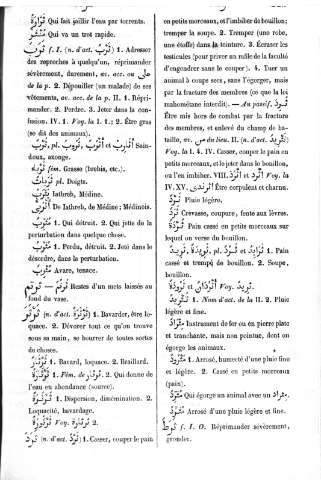 ثَرَّارَةٌ Qui fait jaillir l'eau par torrents.
Qui va un trot rapide.
ثَرَبَ f. I. (n. d'act. ثَرْبٌ) 1. Adresser
des reproches à quelqu'un, réprimander
sévèrement, durement, av. acc. ou على
de la p. 2. Dépouiller (un malade) de ses
vêtements, av. acc. de la p. II. 1. Répri-
mander. 2. Perdre. 3. Jeter dans la con-
fusion. IV. 1. Voy. la 1. 1.; 2. Être gras
(se dit des animaux).
ثَرْبٌ, pl. ثُرُوبٌ et أَثْرُبٌ, أَثَارِبُ Sain-
doux, axonge.
fém. Grasse (brebis, etc.).
pl. Doigts.
يَثْرِبُ Iathreb, Médine.
De Iathreb, de Médine; Médinois.
1. Qui détruit. 2. Qui jette de la
perturbation dans quelque chose.
1. Perdu, détruit. 2. Jeté dans le
désordre, dans la perturbation.
Avare, tenace.
ثرتم — ثُرْتُمٌ Restes d'un mets laissés au
fond du vase.
ثَرْثَرَ (n. d'act. ثَرْثَرَةٌ) 1. Bavarder, être lo-
quace. 2. Dévorer tout ce qu'on trouve
sous sa main, se bourrer de toutes sortes
de choses.
ثَرْثَارٌ 1. Bavard, loquace. 2. Braillard.
ثَرْثَارَةٌ 1. Fém. de ثَرْثَارٌ. 2. Qui donne de
l'eau en abondance (source).
ثَرْثَرَةٌ 1. Dispersion, dissémination. 2.
Loquacité, bavardage.
Voy. ثَرَّارَةٌ 2.
ثَرَدَ (n. d'act. ثَرْدٌ) 1. Casser, couper le pain
en petits morceaux, et l'imbiber de bouillon;
tremper la soupe. 2. Tremper (une robe,
une étoffe) dans la teinture. 3. Écraser les
testicules (pour priver un mâle de la faculté
d'engendrer sans le couper). 4. Tuer un
animal à coups secs, sans l'égorger, mais
par la fracture des membres (ce que la loi
mahométane interdit). — Au passif, ثُرِدَ
Être mis hors de combat par la fracture
des membres, et enlevé du champ de ba-
taille, av. من du lieu. II. (n. d'act. تَثْرِيدٌ)
Voy. la 1. 4. IV. Casser, couper le pain en
petits morceaux, et le jeter dans le bouillon,
ou l'en imbiber. VIII. اثَّرَدَ et اتَّرَدَ Voy. la
IV. XV. اثْرَنْدَى Être corpulent et charnu.
ثَرْدٌ Pluie légère.
ثَرَدٌ Crevasse, coupure, fente aux lèvres.
Pain cassé en petits morceaux sur
lequel on verse du bouillon.
ثَرِيدٌ, ثَرِيدَةٌ, pl. ثَرَائِدُ et ثُرُدٌ 1. Pain
cassé et trempé de bouillon. 2. Soupe,
bouillon.
ثُرْدَةٌ et أُثْرُدَانٌ Voy. ثَرِيدٌ.
تَثْرِيدٌ 1. Nom d'act. de la II. 2. Pluie
légère et fine.
مِثْرَادٌ Instrument de fer ou en pierre plate
et tranchante, mais non pointue, dont on
égorge les animaux.
مَثْرُودٌ 1. Arrosé, humecté d'une pluie fine
et légère. 2. Cassé en petits morceaux
(pain).
مُثَرِّدٌ Qui égorge un animal avec un مِثْرَادٌ.
مُثَرَّدٌ Arrosé d'une pluie légère et fine.
f. I. O. Réprimander sévèrement,
gronder.